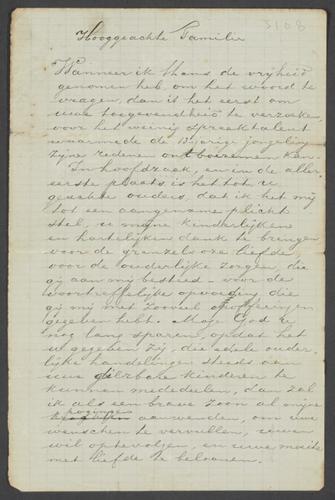 3108
Hooggeachte Familie
Wanneer ik thans de vrijheid
genomen heb, om het woord te
vragen, dan is het eerst om
uwe toegevendheid te verzoeken
voor het weinig spreektalent
waarmede de 13 jarige jongeling
zijne redenen ontboezemen kan.
In hoofdzaak, en in de aller
eerste plaats is het tot u
geachte ouders, dat ik het mij
tot een aangename plicht
stel, u mijne kinderlijken
en hartelijken dank te brengen
voor de grenzelooze liefde,
voor de ouderlijke zorgen, die
gij aan mij besteed - voor de
voortreffelijke opvoeding die
gij mij met zooveel opofferingen
gegeven hebt. Mag God u
nog lang sparen, opdat het
u gegeven zij, die ouder
lijke handelingen steeds aan
uwe dierbare kinderen te
kunnen mededeelen, dan zal
ik als een brave zoon al mijne
pogingen aanwenden, om uwe
wenschen te vervullen, uwen
wil optevolgen, en uwe moeite
met liefde te beloonen.